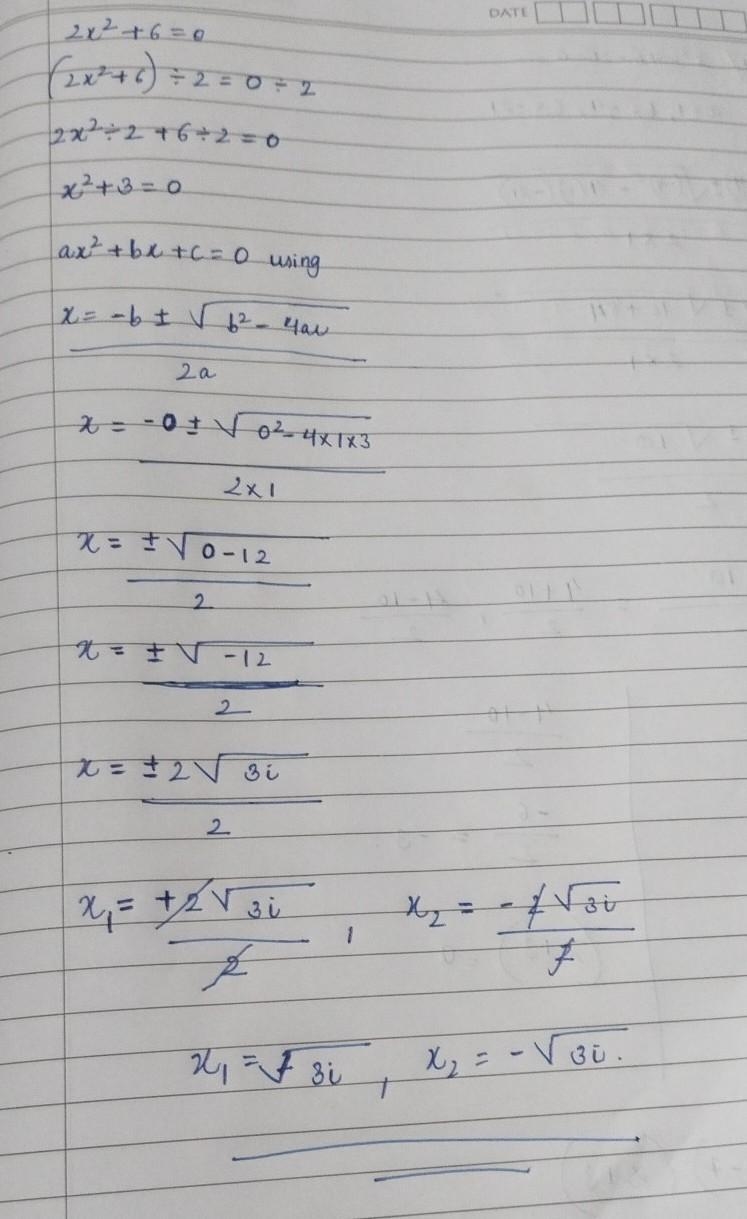 DATE
2x² + 6 = 0
(2x² + 6) ÷ 2 = 0 ÷ 2
2x² ÷ 2 + 6 ÷ 2 = 0
x² + 3 = 0
ax² + bx + c = 0 using
x = -b ± √b² - 4ac
2a
x = -0 ± √0² - 4x1x3
2 x 1
x = ± √0 - 12
2
x = ± √-12
2
x = ± 2√3i
2
x₁ = +2√3i , x₂ = -2√3i
2 2
x₁ = √3i , x₂ = -√3i.